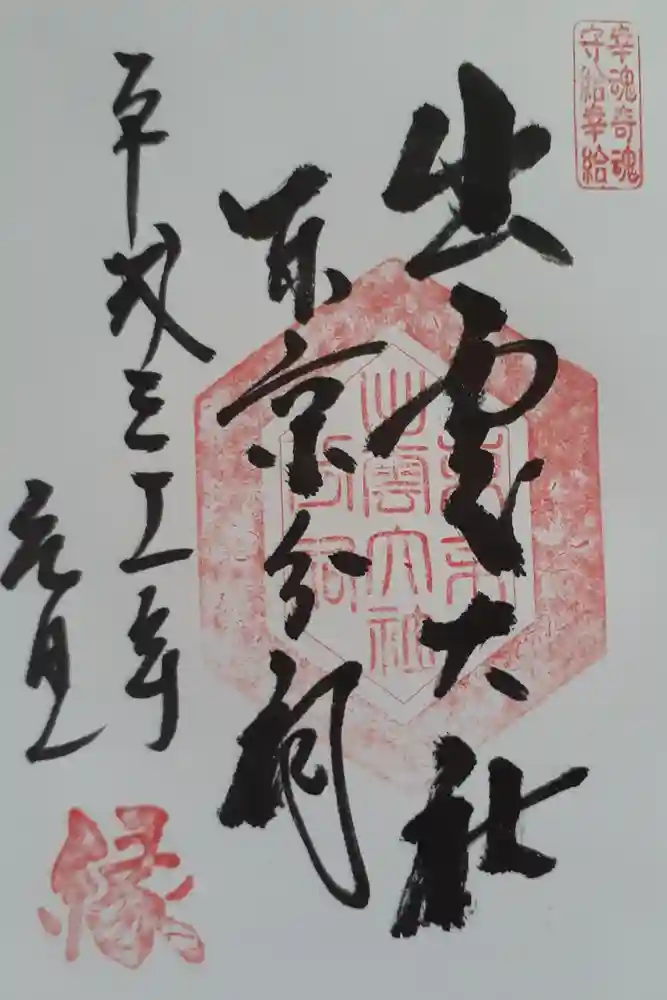 幸魂奇魂
守給幸給
出雲大社
東京分祠
東京
出雲大社
分祠
平成三十一年
元旦
縁